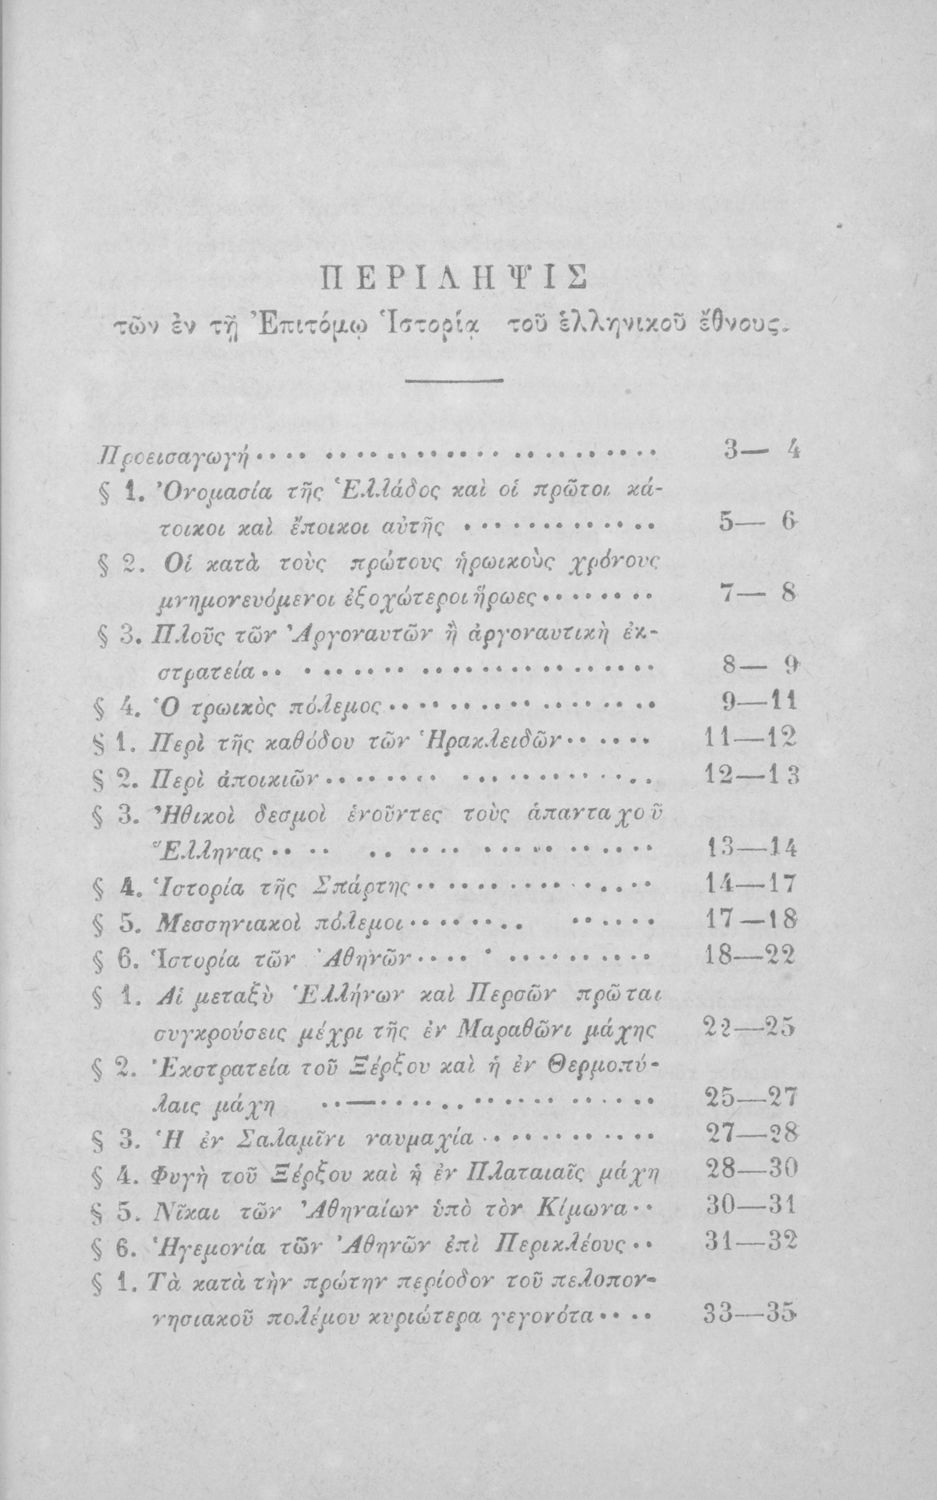 ΠΕΡΙΛΗΨΙΣ
τῶν ἐν τῇ Ἐπιτόμῳ Ἱστορίᾳ τοῦ ἑλληνικοῦ ἔθνους.
Προεισαγωγή . . . . . . . . . . 3— 4
§ 1. Ὀνομασία τῆς Ἑλλάδος καὶ οἱ πρῶτοι κά-
τοικοι καὶ ἔποικοι αὐτῆς . . . . . . . . . . 5— 6
§ 2. Οἱ κατὰ τοὺς πρώτους ἡρωικοὺς χρόνους
μνημονευόμενοι ἐξοχώτεροι ἥρωες . . . . . . . . 7— 8
§ 3. Πλοῦς τῶν Ἀργοναυτῶν ἢ ἀργοναυτικὴ ἐκ-
στρατεία . . . . . . . . . . 8— 9
§ 4. Ὁ τρωικὸς πόλεμος . . . . . . . . . . 9—11
§ 1. Περὶ τῆς καθόδου τῶν Ἡρακλειδῶν . . . . . . 11—12
§ 2. Περὶ ἀποικιῶν . . . . . . . . . . 12—13
§ 3. Ἠθικοὶ δεσμοὶ ἑνοῦντες τοὺς ἁπανταχοῦ
Ἕλληνας . . . . . . . . . . 13—14
§ 4. Ἱστορία τῆς Σπάρτης . . . . . . . . . . 14—17
§ 5. Μεσσηνιακοὶ πόλεμοι . . . . . . . . . . 17—18
§ 6. Ἱστορία τῶν Ἀθηνῶν . . . . . . . . . . 18—22
§ 1. Αἱ μεταξὺ Ἑλλήνων καὶ Περσῶν πρῶται
συγκρούσεις μέχρι τῆς ἐν Μαραθῶνι μάχης 22—25
§ 2. Ἐκστρατεία τοῦ Ξέρξου καὶ ἡ ἐν Θερμοπύ-
λαις μάχη . . . . . . . . . . 25—27
§ 3. Ἡ ἐν Σαλαμῖνι ναυμαχία . . . . . . . . . . 27—28
§ 4. Φυγὴ τοῦ Ξέρξου καὶ ἡ ἐν Πλαταιαῖς μάχη 28—30
§ 5. Νῖκαι τῶν Ἀθηναίων ὑπὸ τὸν Κίμωνα . . 30—31
§ 6. Ἡγεμονία τῶν Ἀθηνῶν ἐπὶ Περικλέους . . 31—32
§ 1. Τὰ κατὰ τὴν πρώτην περίοδον τοῦ πελοπον-
νησιακοῦ πολέμου κυριώτερα γεγονότα . . . . 33—35